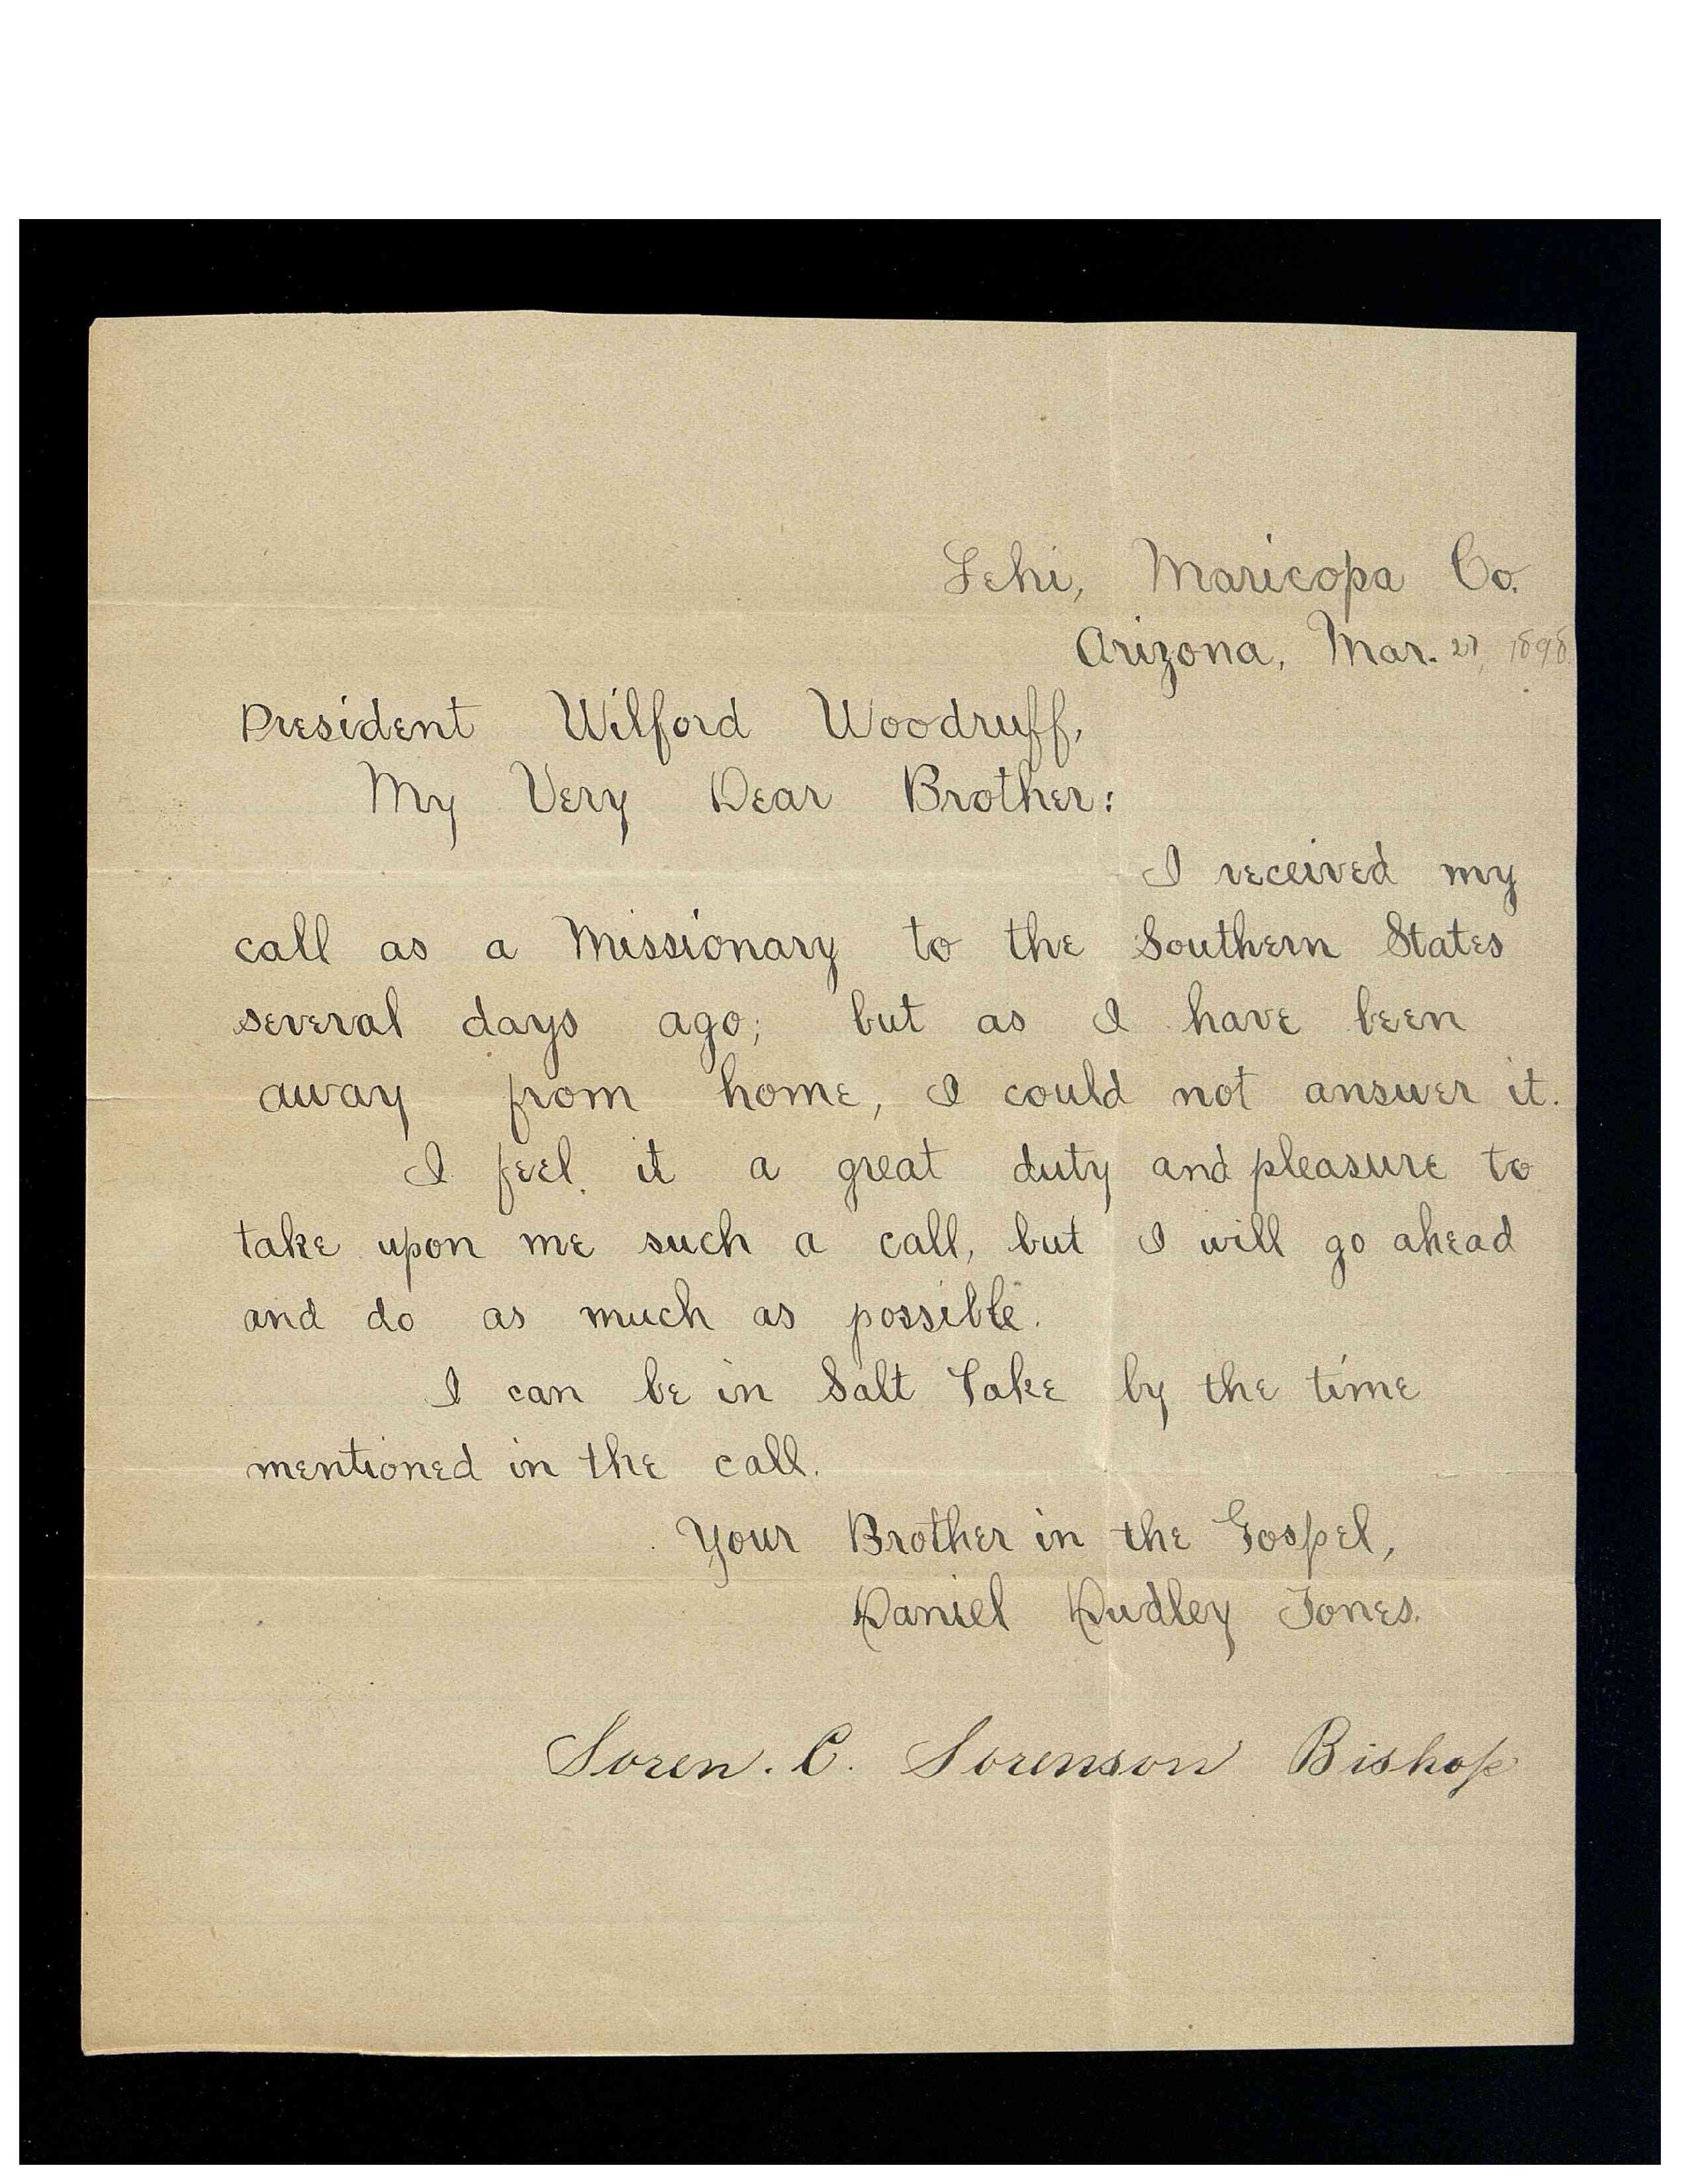 Lehi, Maricopa Co.
Arizona, Mar. 27, 1898.
President Wilford Woodruff,
My Very Dear Brother:
I received my
call as a Missionary to the Southern States
several days ago; but as I have been
away from home, I could not answer it.
I feel it a great duty and pleasure to
take upon me such a call, but I will go ahead
and do as much as possible.
I can be in Salt Lake by the time
mentioned in the call.
Your Brother in the Gospel,
Daniel Dudley Jones.
Soren. C. Sorenson Bishop